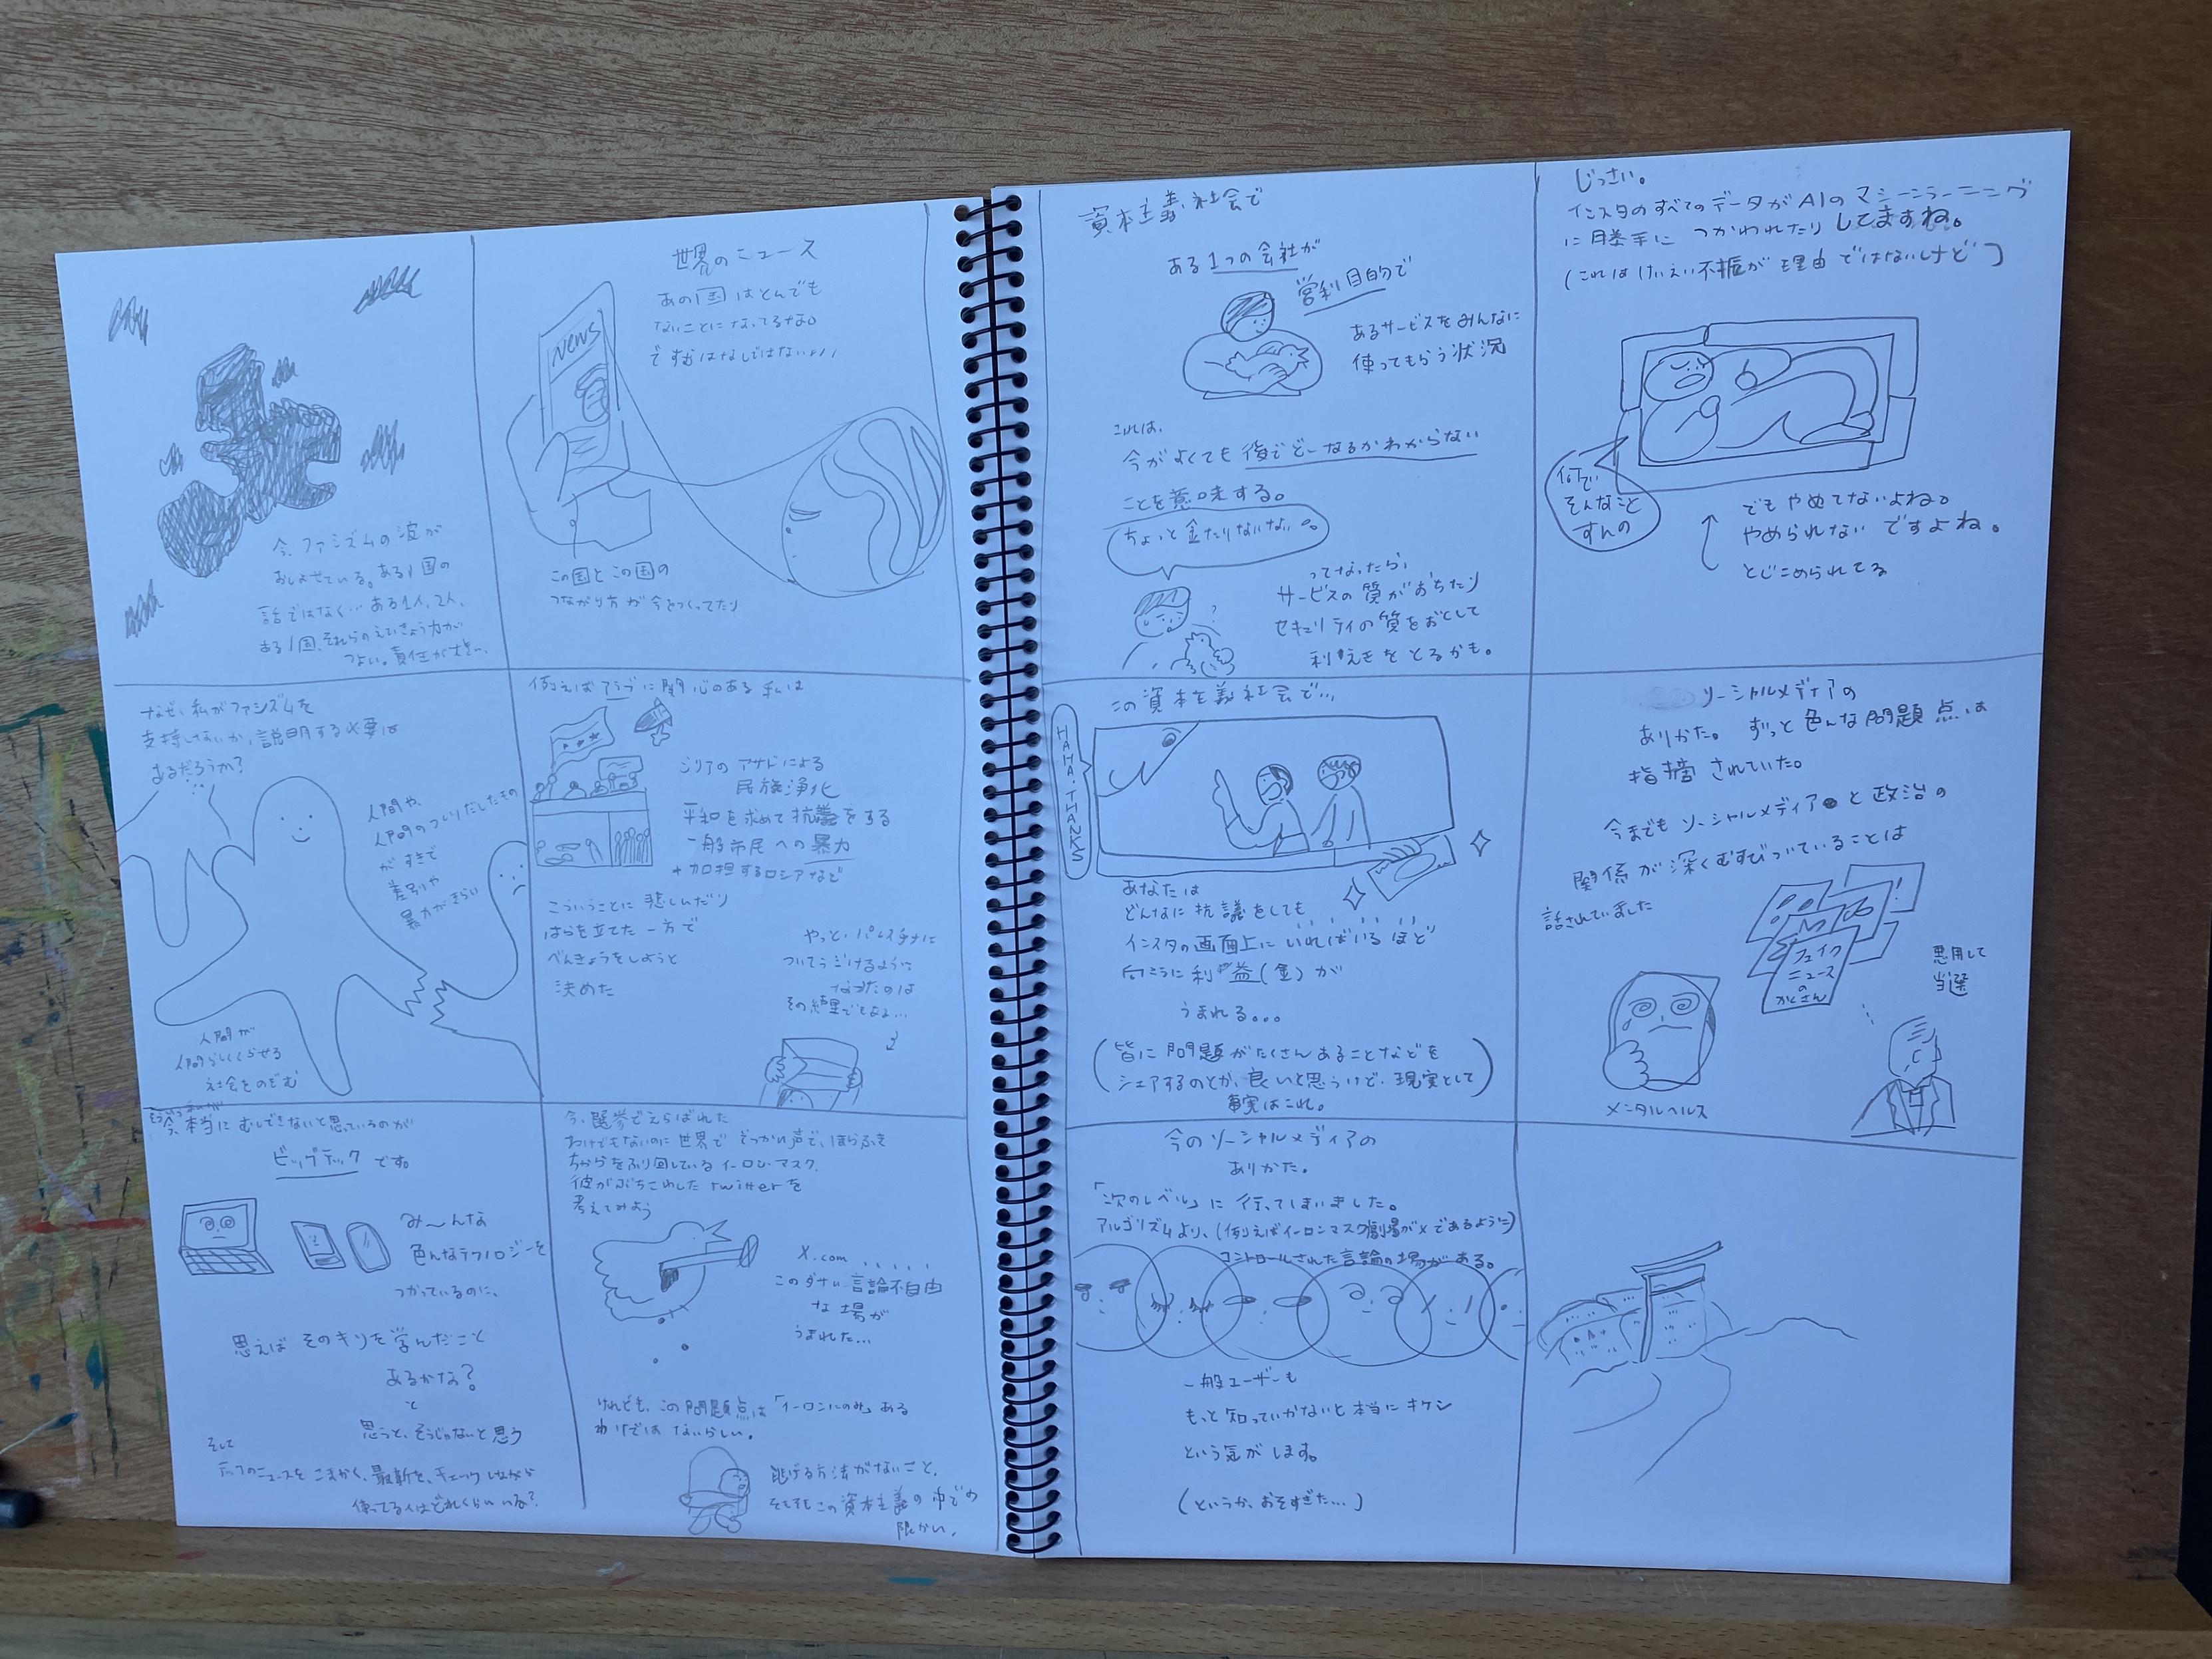 今、ファシズムの波が
おしよせている。ある1国の
話ではなく…ある1人、2人、
ある1国、それらのえいきょう力が
つよい。責任が大きい。
世界のニュース
あの国はとんでも
ないことになってるな。
ですむはなしではない…
NEWS
この国とこの国の
つながり方が今をつくってたり
なぜ、私がファシズムを
支持しないか、説明する必要は
あるだろうか?
人間や、
人間のつくりだしたもの
がすきで
差別や
暴力がきらい
人間が
人間らしくくらせる
社会をのぞむ
例えばアラブに関心のある私は
シリアのアサドによる
民族浄化
平和を求めて抗議をする
一般市民への暴力
+加担するロシアなど
こういうことに悲しんだり
はらを立てた一方で
べんきょうをしようと
決めた
やっと、パレスチナに
ついてうごけるように
なったのは
その経
今、本当にむしできないと思っているのが
ビッグテックです。
み〜んな
色んなテクノロジーを
つかっているのに、
思えばそのキリを学んだこと
あるかな?
と
思うと、そうじゃないと思う
そして
テックのニュースをこまかく、最新を、チェックしながら
使ってる人はどれくらいいる?
今、選挙でえらばれた
わけでもないのに世界ででっかい声で、ほらふき
ちからをふり回しているイーロン・マスク。
彼がぶちこわしたtwitterを
考えてみよう
X.com
このダサい言論不自由
な場が
うまれた…
けれども、この問題点は「イーロンにのみ」ある
わけではないらしい。
逃げる方法がないこと、
そもそもこの資本主義の中での
限かい。
資本主義社会で
ある1つの会社が
営利目的で
あるサービスをみんなに
使ってもらう状況
これは、
今がよくても後でどーなるかわからない
ことを意味する。
ちょっと金たりないな…
ってなったら、
サービスの質がおちたり
セキュリティの質をおとして
利えきをとるかも。
じっさい。
インスタのすべてのデータがAIのマシーンラーニング
に勝手につかわれたりしてますね。
(これはけいえい不振が理由ではないけど)
何で
そんなこと
すんの
でもやめてないよね。
やめられないですよね。
とじこめられてる
この資本主義社会で…
HAHA・THANKS
あなたは
どんなに抗議をしても、
インスタの画面上にいればいるほど
向こうに利益(金)が
うまれる...
(皆に問題がたくさんあることなどを
シェアするのとか、良いと思うけど、現実として
事実はこれ。)
ソーシャルメディアの
ありかた。ずっと色んな問題点は
指摘されていた。
今までもソーシャルメディアと政治の
関係が深くむすびついていることは
話されていました
フェイク
ニュース
の
かくさん
悪用して
当選
メンタルヘルス
今のソーシャルメディアの
ありかた。
「次のレベル」に行ってしまいました。
アルゴリズムより、(例えばイーロンマスク劇場がXであるように)
コントロールされた言論の場がある。
一般ユーザーも
もっと知っていかないと本当にキケン
という気がします。
(というか、おそすぎた…)